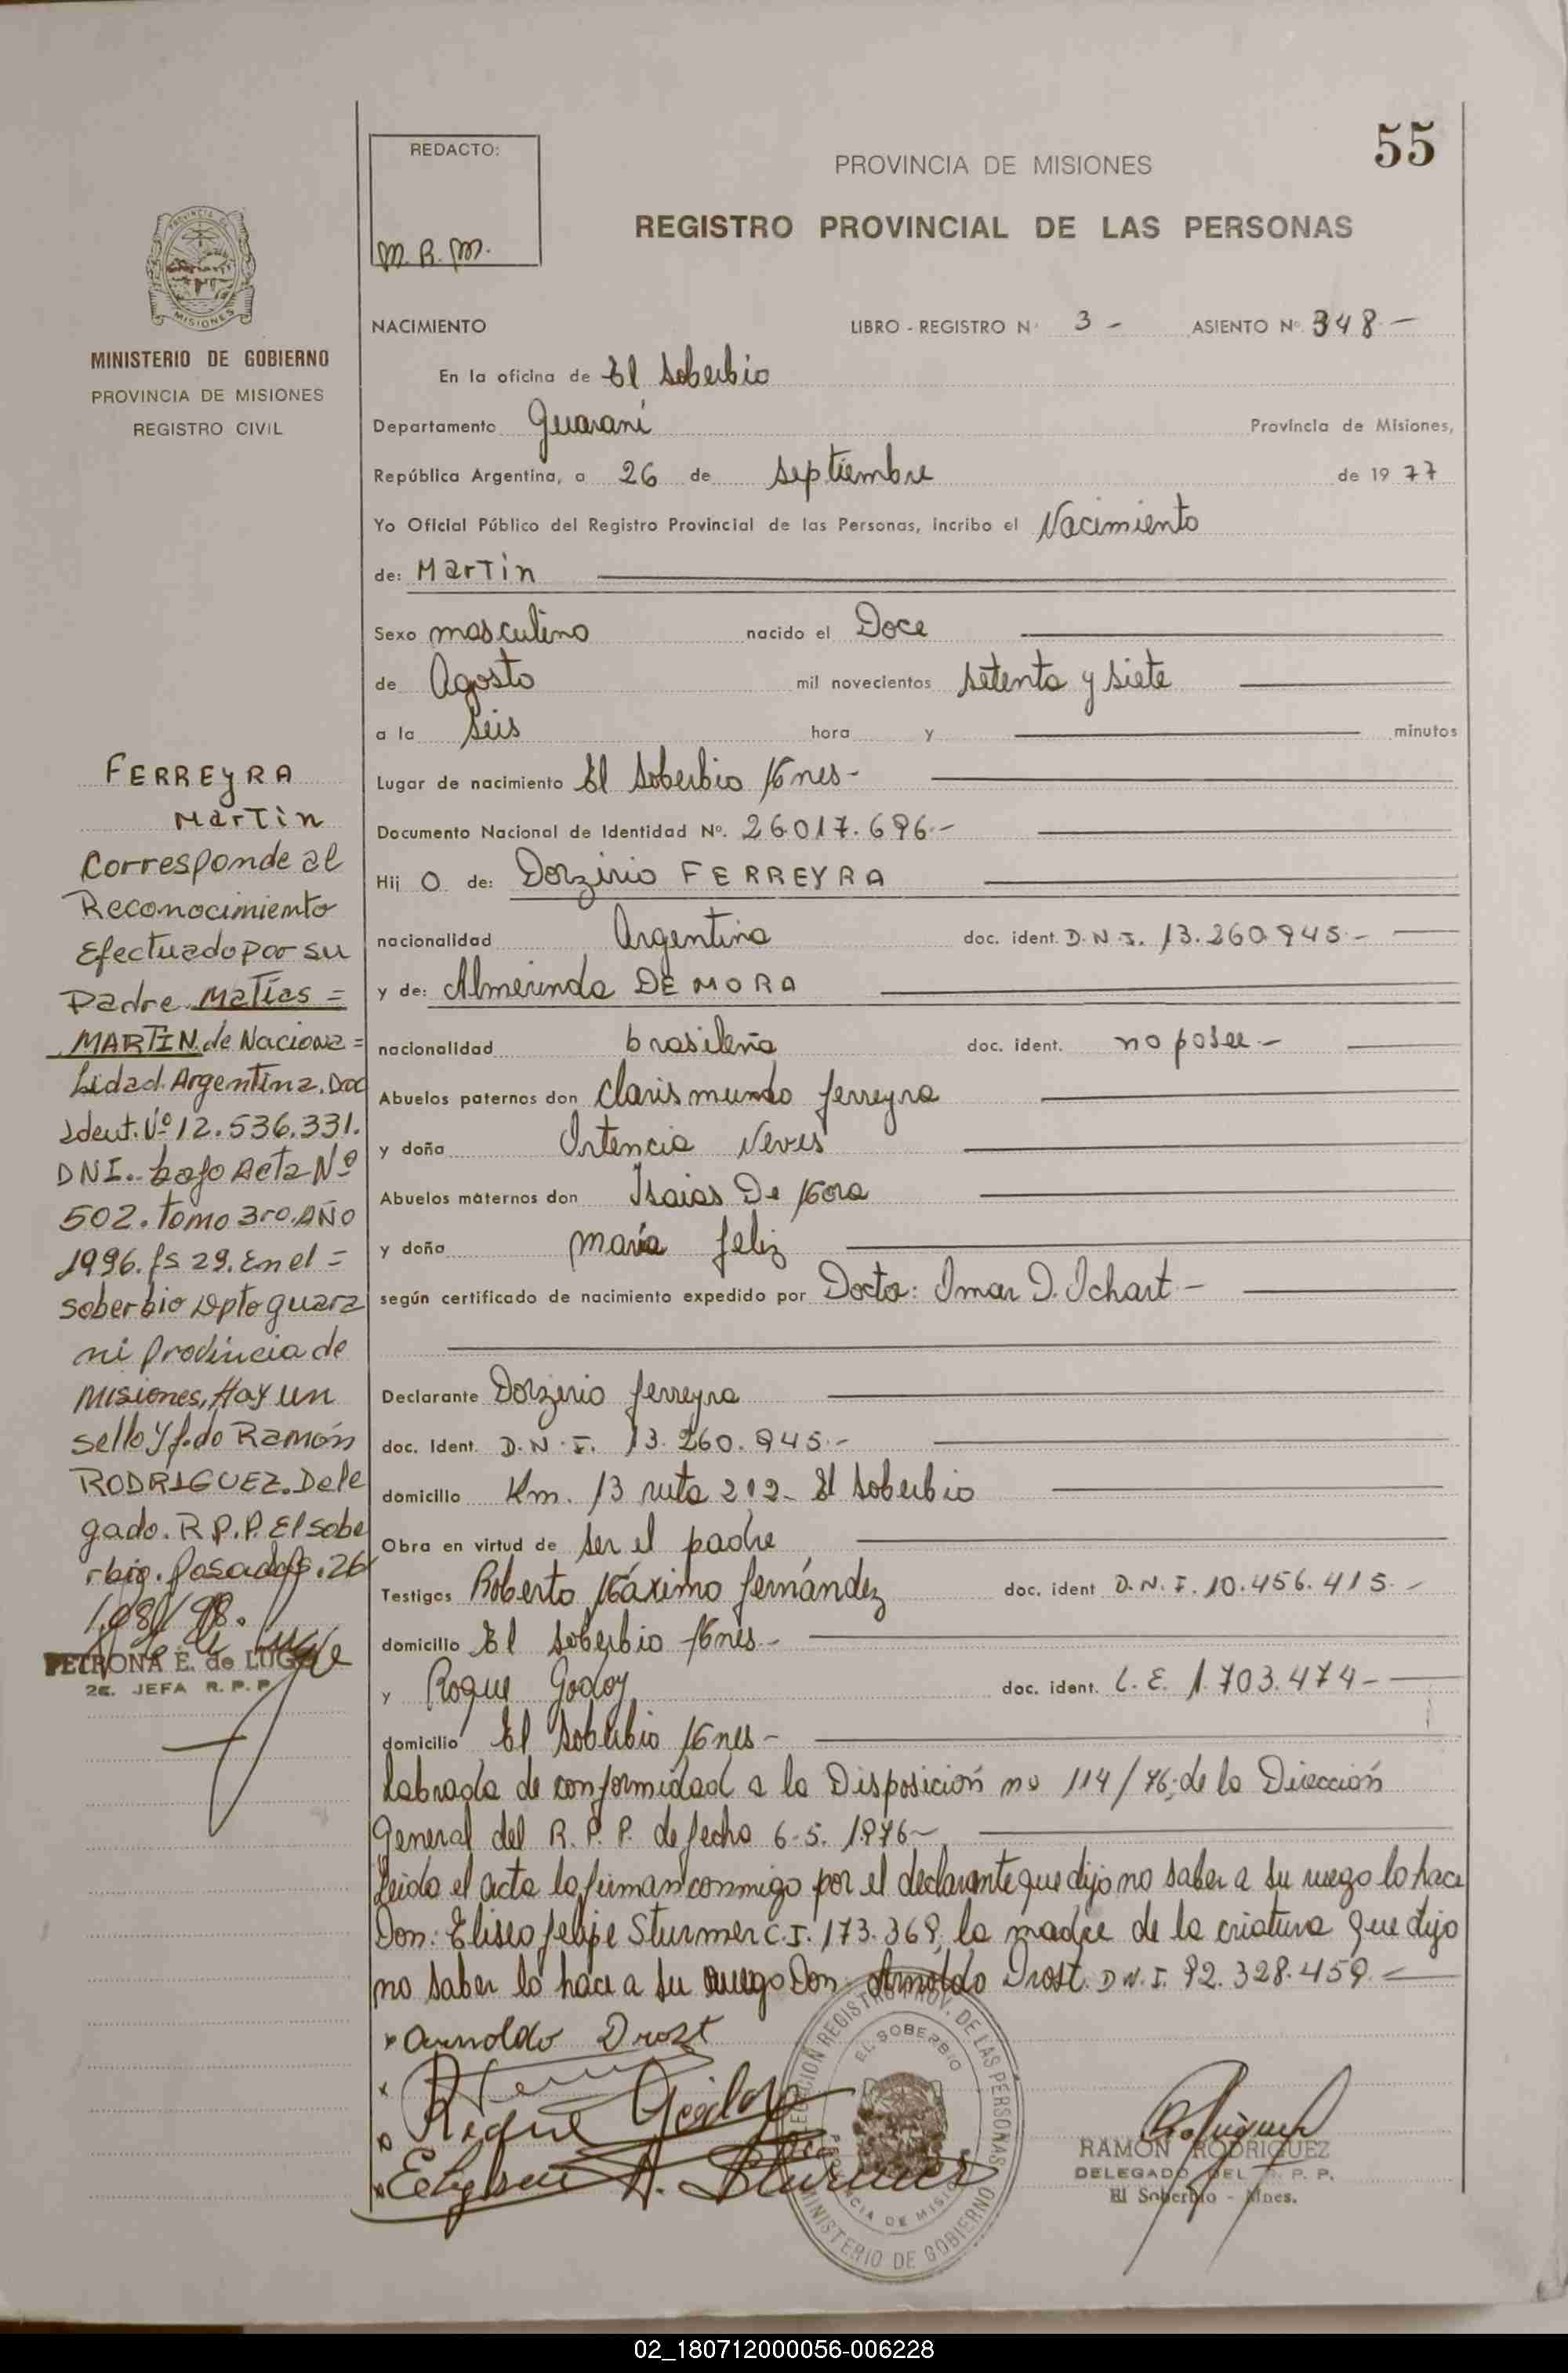 55
REDACTO:
M. R. M.
PROVINCIA DE MISIONES
REGISTRO PROVINCIAL DE LAS PERSONAS
MISIONES
MINISTERIO DE GOBIERNO
PROVINCIA DE MISIONES
REGISTRO CIVIL
NACIMIENTO LIBRO - REGISTRO Nº 3 - ASIENTO Nº 348 -
En la oficina de El Soberbio
Departamento Guaraní Provincia de Misiones,
República Argentina, a 26 de septiembre de 1977
Yo Oficial Público del Registro Provincial de las Personas, incribo el Nacimiento
de: Martin
Sexo masculino nacido el Doce
de Agosto mil novecientos setenta y siete
a la seis hora y minutos
Lugar de nacimiento El Soberbio Mnes-
Documento Nacional de Identidad Nº. 26.017.696.-
Hij o de: Dorzirio FERREYRA
nacionalidad Argentina doc. ident. D.N.I. 13.260.945.-
y de: Almerinda DE MORA
nacionalidad brasileña doc. ident. no posee.-
Abuelos paternos don Clarismundo Ferreyra
y doña Ortencia Neves
Abuelos maternos don Isaias De Mora
y doña María Feliz
según certificado de nacimiento expedido por Doctor: Omar D. Ichart-
Declarante Dorzirio Ferreyra
doc. Ident. D.N.I. 13.260.945.-
domicilio Km. 13 ruta 212- El Soberbio
Obra en virtud de ser el padre
Testigos Roberto Máximo Fernández doc. ident D.N.I. 10.456.415.-
domicilio El Soberbio Mnes.-
y Roque Godoy doc. ident. L.E. 1.703.474-
domicilio El Soberbio Mnes-
Labrada de conformidad a la Disposición nº 114/76, de la Dirección
General del R.P.P. de fecha 6-5-1976-
Leida el acta la firman conmigo por el declarante que dijo no saber a su ruego lo hace
Don: Eliseo Felipe Sturmer C.I. 173.369, la madre de la criatura que dijo
no saber lo hace a su ruego Don: Arnoldo Drost. D.N.I. 92.328.459.-
Arnoldo Drozt
Roque Godoy
Sturmer
EL SOBERBIO
MINISTERIO DE GOBIERNO
RAMON RODRIGUEZ
DELEGADO DEL R. P. P.
El Soberbio - Mnes.
FERREYRA
Martin
Corresponde al
Reconocimiento
Efectuado por su
Padre Matías =
MARTIN de Naciona =
Lidad Argentina. Doc
Ident. Nº 12.536.331.
DNI. bajo Acta Nº
502. tomo 3ro. AÑO
1996. fs 29. En el =
soberbio Dpto guara
ni Provincia de
Misiones, Hay un
sello y f.do Ramón
RODRIGUEZ. Dele
gado. R.P.P. El sobe
rbio. Posadas. 26
PETRONA E. de LUGO
2E. JEFA R. P. P.
02_180712000056-006228